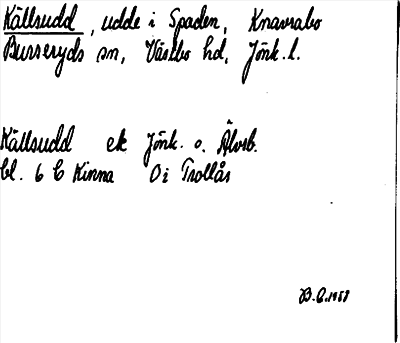 Källsudd, udde i Spaden, Knavrabo
Burseryds sn, Västbo hd, Jönk. l.
Källsudd ek Jönk. o. Älvsb.
bl. 6 C Kinna O i Trollås